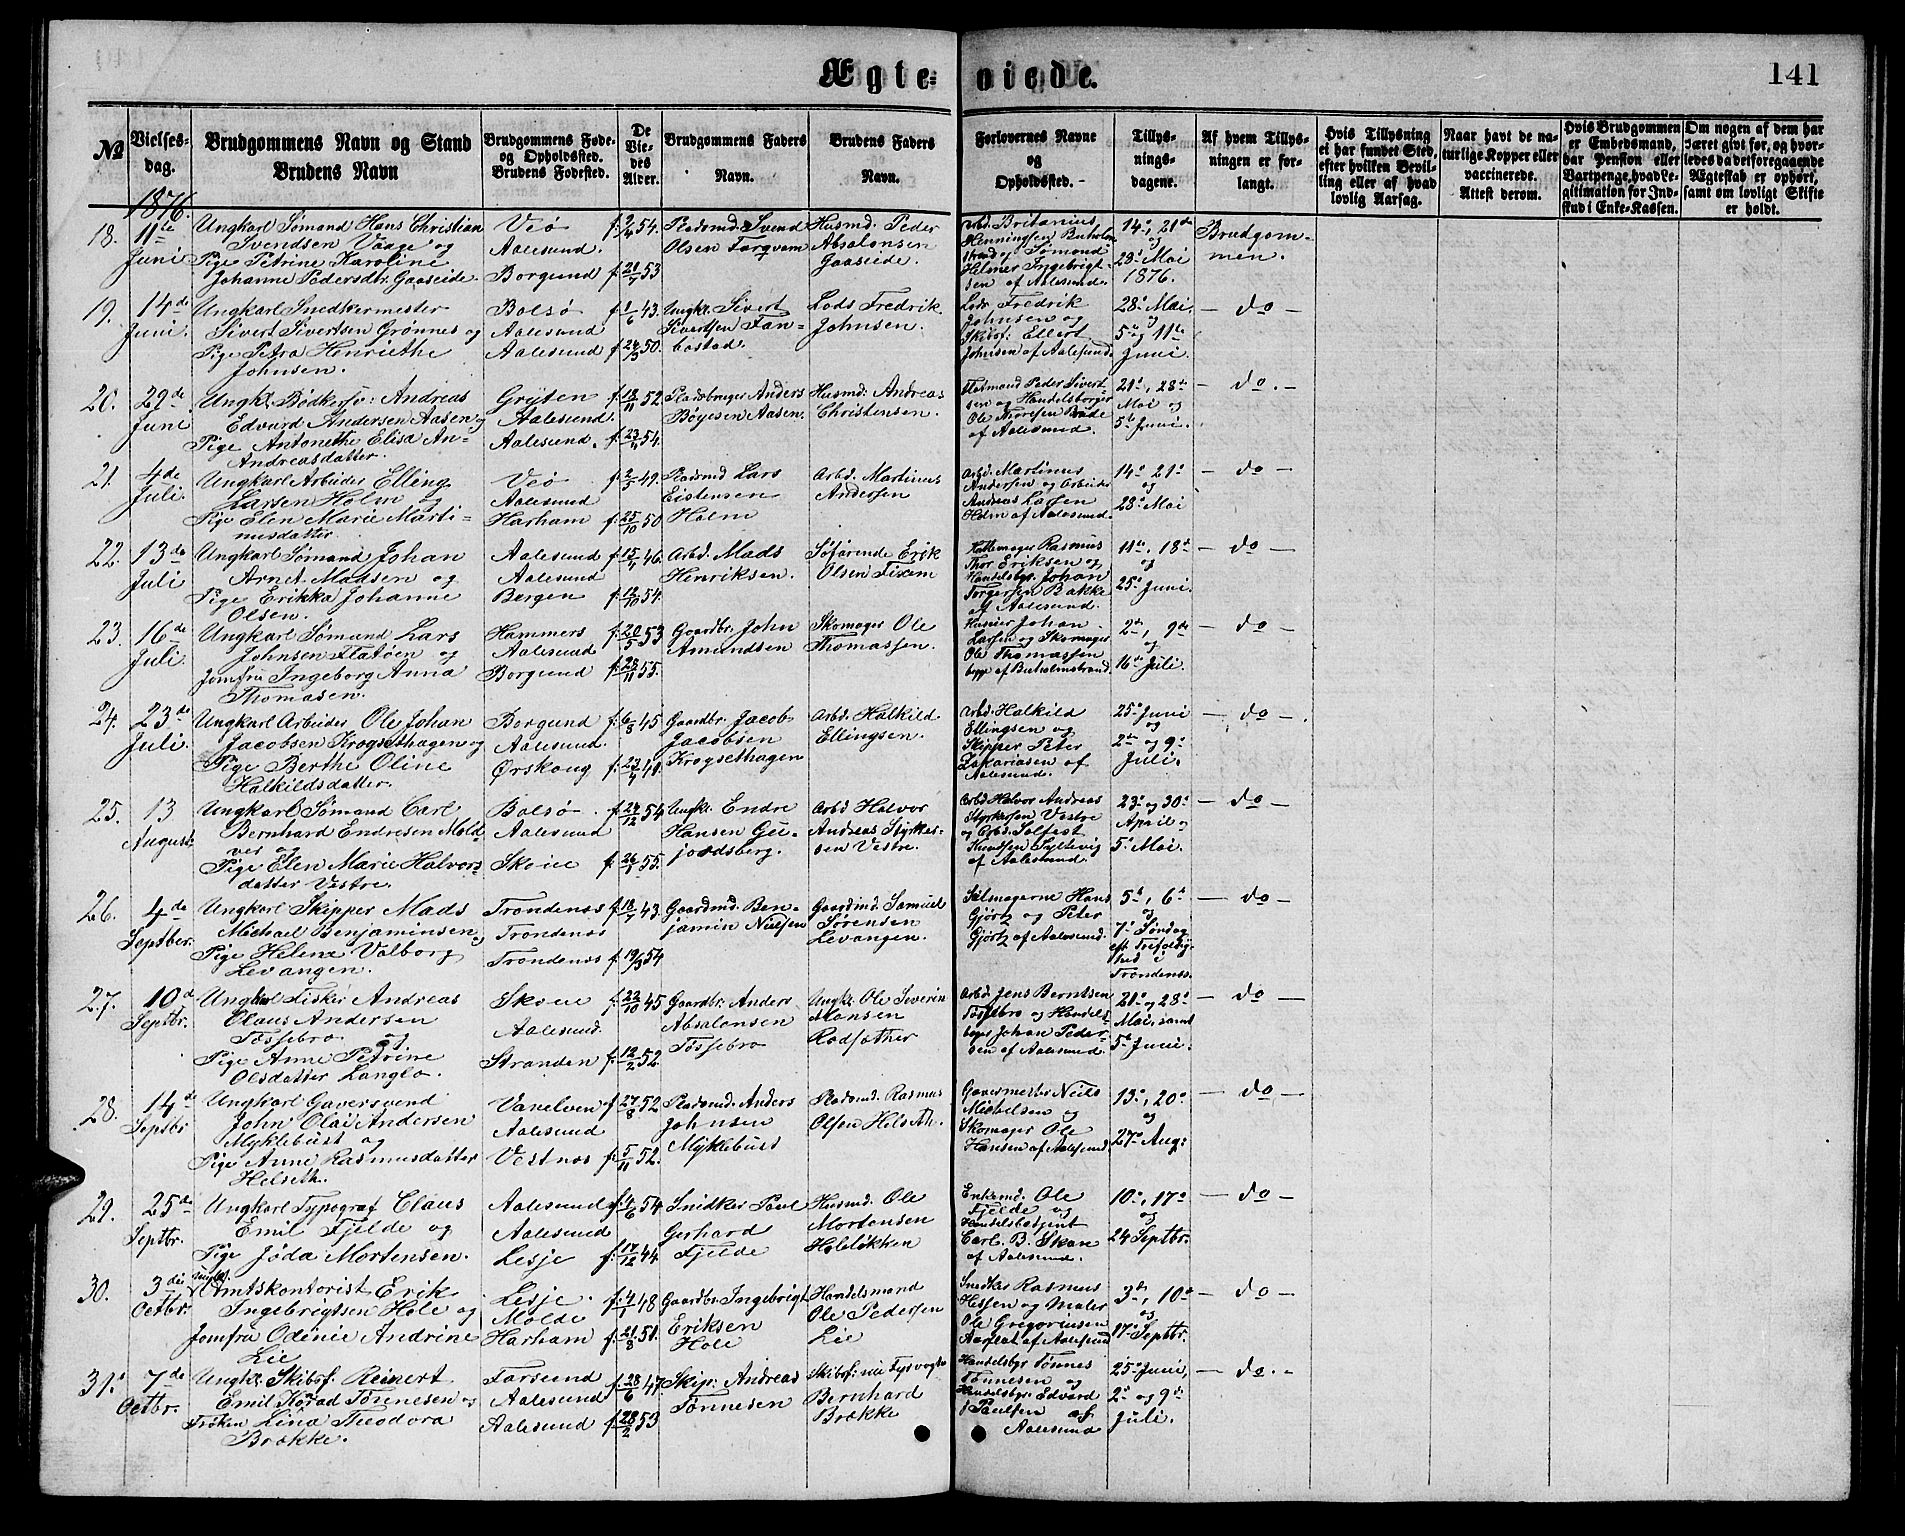 Ægte- viede.
141
№
Vielses-
dag.
Brudgommens Navn og Stand
Brudens Navn
Brudgommens Føde-
og Opholdssted.
Brudens Fødested.
De
Vie-
des
Alder.
Brudgommens Faders
Navn.
Brudens Faders
Navn.
Forlovernes Navne
og
Opholdssted.
Tillys-
nings-
dagene.
Af hvem Tillys-
ningen er for-
langt.
Hvis Tillysning
ei har fundet Sted,
efter hvilken Bevil-
ling eller af hvad
lovlig Aarsag.
Naar havt de na-
turlige Kopper eller
vaccinerede.
Attest derom.
Hvis Brudgommen
er Embedsmand,
har Pension eller
Vartpenge, hvad Le-
gitimation for Ind-
skud i Enke-Kassen.
Om nogen af dem har
været gift før, og hvor-
ledes da det foregaaende
Ægteskab er ophørt,
samt om lovligt Skifte
er holdt.
1876.
18.
11te
Juni
Ungkarl Sømand Hans Christian
Svendsen Vaage og
Pige Petrine Karoline
Johanne Pedersdtr. Gaaseide.
Veø
Aalesund.
Borgund
f. 2/4 54.
f. 21/7 53
Pladsmd. Svend
Olsen Torgvam
Husmd. Peder
Absalonsen
Gaaseide.
Arbd. Britanius
Henningsen Buholm
strand og Sømand
Helmer Ingebrigt-
sen af Aalesund.
14de, 21de
og
28de Mai
1876.
Brudgom-
men.
19.
14de
Juni.
Ungkarl Snedkermester
Sivert Sivertsen Grønnes og
Pige Petra Henriethe
Johnsen.
Bolsø
Aalesund
Aalesund
f. 1/6 43.
f. 24/3 50.
Ungk. Sivert
Sivertsen Tan-
bastad.
Lods Fredrik
Johnsen.
Lods Fredrik
Johnsen og
Skibsf. Ellert
Johnsen af Aalesund.
28de Mai
5te og 11te
Juni.
— do —
20.
29de
Juni
Ungk. Bødkersv: Andreas
Edvard Andersen Aasen og
Pige Antonethe Elisa An-
Andreasdatter.
Grytten
Aalesund.
Aalesund.
f. 18/11 52.
f. 23/4 54.
Pladsbruger Anders
Bøyesen Aasen.
Husmd: Andreas
Christensen.
Flotmand Peder Sivert-
sen og Handelsborger
Ole Thoresen Brude
af Aalesund.
21de, 28de
Mai og
5te Juni.
— do. —
21.
4de
Juli.
Ungkarl Arbeider Elling
Larsen Holm og
Pige Elen Marie Marti-
nusdatter.
Veø
Aalesund
Harham
f. 2/5 49.
f. 25/10 50
Pladsmd Lars
Eistensen
Holm
Arbd. Martinus
Andersen
Arbd. Martinus
Andersen og Arbeider
Andreas Larsen
Holm af Aalesund.
14de 21de
og
28de Mai
— do —
22.
13de
Juli
Ungkarl Sømand Johan
Arnet Madsen og
Pige Erikka Johanne
Olsen.
Aalesund
Aalesund
Bergen
f. 15/7 46.
f. 12/10 54.
Arbd. Mads
Henriksen.
Søfarende Erik
Olsen Fixem
Hattemager Rasmus
Thor Eriksen og
Handelsbgr. Johan
Torgersen Bakke
af Aalesund.
11te, 18de
og
25de Juni.
— do —
23.
16de
Juli.
Ungkarl Sømand Lars
Johnsen Flatøen og
Jomfru Ingeborg Anna
Thomasen.
Hammers
Aalesund
Borgund
f. 20/5 53
f. 28/11 55.
Gaardbr. John
Amundsen
Skomager Ole
Thomassen.
Johan
Larsen og Skomager
Ole Thomassen
begge af Buholmstrand.
2de, 9de
og
16de Juli.
— do —
24.
23de
Juli.
Ungkarl Arbeider Ole Johan
Jacobsen Krogsethagen og
Pige Berthe Oline
Halkildsdatter.
Borgund
Aalesund.
Ørskoug
f. 6/8 45
f. 23/4 49.
Gaardbr. Jacob
Jacobsen
Krogsethagen
Arbd. Halkild
Ellingsen.
Arbd. Halkild
Ellingsen og
Skipper Peter
Zakariasen af
Aalesund.
25de Juni
og
2de og 9de
Juli.
— do —.
25.
13
August.
Ungkarl Sømand Carl
Bernhard Endresen Mold
ver og
Pige Elen Marie Halvors-
datter Vestre.
Bolsø.
Aalesund
Skoue
f. 24/12 54
f. 26/1 55.
Ungk. Endre
Hansen Gui-
jordsberg.
Arbd Halvor
Andreas Styrkes-
sen Vestre.
Arbd Halvor Andreas
Styrkersen Vestre
og Arbd. Solfest
Knudsen Syltevig
af Aalesund.
23de og 30de
April og
5te Mai.
— do —
26.
4de
Septber.
Ungkarl Skipper Mads
Michael Benjaminsen og
Pige Helene Valborg
Levangen.
Trondenæs
Trondenæs
Trondenæs
f. 18/7 43.
f. 19/3 54
Gaardmd. Ben-
jamin Nielsen
Gaardmd. Samuel
Sørensen
Levangen.
Seilmagerne Hans
Gjørtz og Peter
Gjørtz af Aalesund.
5te, 6te
og
7de Søndag
eft. Trefoldig-
hed i
Trondenæs.
— do —
27.
10de
Septbr.
Ungkarl Fisker Andreas
Claus Andersen
Tøssebro og
Pige Anne Petrine
Olsdatter Langlo.
Skoue
Aalesund.
Stranden
f. 22/10 45
f. 12/2 52.
Gaardbr. Anders
Absalonsen
Tøssebro
Ungk. Ole Severin
Monsen
Rødsæther
Arbd. Jens Berntsen
Tøssebro og Handels-
bgr. Johan Peder-
sen af Aalesund
21de og 28de
Mai, samt
5te Juni.
— do —
28.
14de
Septbr
Ungkarl Garversvend
John Olai Andersen
Myklebust og
Pige Anne Rasmusdatter
Helseth.
Vanelven
Aalesund
Vestnæs
f. 27/8 52
f. 5/11 52.
Pladsmd. Anders
Johnsen
Myklebust
Pladsmd. Rasmus
Olsen Helseth.
Garvermester Neils
Michelsen og
Skomager Ole
Hansen af Aalesund.
13de, 20de
og
27de Aug:
— do —
29.
25de
Septbr.
Ungkarl Typograf Claus
Emil Fjelde og
Pige Jøda Mortensen.
Aalesund
Aalesund
Lesje
f. 4/6 54
f. 17/12 44.
Snidker Paul
Gerhard
Fjelde
Husmd. Ole
Mortensen
Holeløkken
Enkemd. Ole
Fjelde og
Handelsbetjent
Carl B. Skare
af Aalesund.
10de, 17de
og
24 Septbr.
— do —
30.
3die
Octbr.
Ungkl.
Amtskontorist Erik
Ingebrigtsen Hole og
Jomfru Odinie Andrine
Lie
Lesje.
Molde
Harham
f. 4/1 48
f. 21/8 51.
Gaardbr. Ingebrigt
Eriksen
Hole
Handelsmand
Ole Pedersen
Lie
Snedker Rasmus
Hessen og Maler
Ole Gregoriusen
Aarflot af Aalesund
3de, 10de
og
17de Septbr.
— do —
31.
7de
Octbr.
Ungk. Skibsf. Reinert
Emil Konrad Tønnesen og
Frøken Lina Theodora
Brokke.
Farsund
Aalesund
Aalesund
f. 28/6 47.
f. 28/2 53
Skipr. Andreas
Tønnesen
Skibsf. nu Fyrvogter
Bernhard
Brokke
Handelsbgr Tønnes
Tønnesen og
Handelsbgr. Edvard
Paulsen af
Aalesund
25de Juni,
2de og 9de
Juli.
— do. —